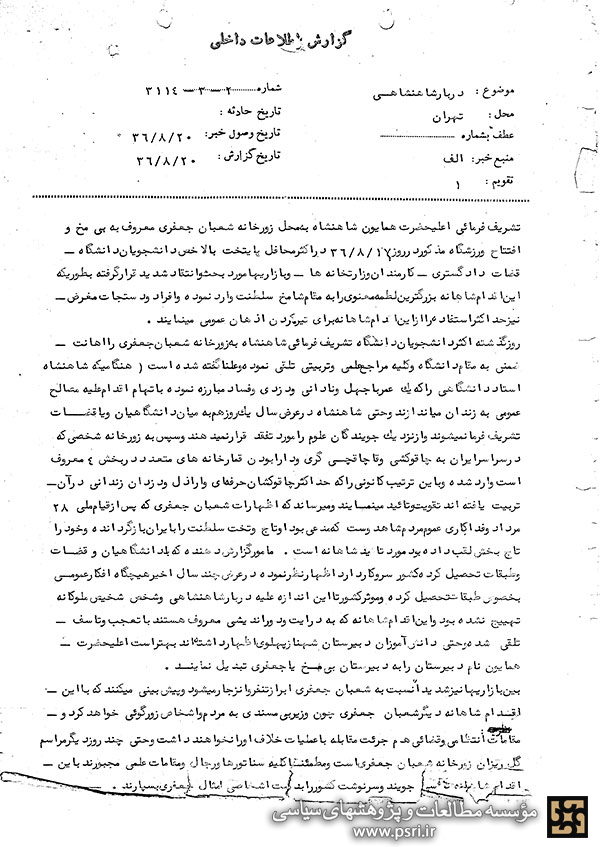 گزارش اطلاعات داخلی
موضوع : دربارشاهنشاهی
شماره ۲-۳-۳۱۱۴
محل : تهران
تاریخ حادثه :
عطف بشماره
تاریخ وصول خبر: ۳۶/۸/۲۰
منبع خبر: الف
تاریخ گزارش: ۳۶/۸/۲۰
تقویم : ۱
تشریف فرمائی اعلیحضرت همایون شاهنشاه به محل زورخانه شعبان جعفری معروف به بی مخ و
افتتاح ورزشگاه مذکور در روز ۳۶/۸/۱۷ در اکثر محافل پایتخت بالاخص دانشجویان دانشگاه ـ
قضات دادگستری ـ کارمندان وزارتخانه ها ـ و بازاریها مورد بحث و انتقاد شدید قرار گرفته بطوریکه
این اقدام شاهانه بزرگترین لطمه معنوی را به مقام شامخ سلطنت وارد نموده و افراد و دستجات مغرض ـ
نیز حد اکثر استفاده را از این اقدام شاهانه برای تیره کردن اذهان عمومی مینمایند .
روز گذشته اکثر دانشجویان دانشگاه تشریف فرمائی شاهنشاه به زورخانه شعبان جعفری را اهانت ـ
ضمنی به مقام دانشگاه و کلیه مراجع علمی و تربیتی تلقی نموده و علنا گفته شده است ( هنگامیکه شاهنشاه
استاد دانشگاهی را که یک عمر با جهل و نادانی و دزدی و فساد مبارزه نموده با تهام اقدام علیه مصالح
عمومی به زندان میاندازند و حتی شاهنشاه در عرض سال یک روز هم به میان دانشگاهیان و یا قضات
تشریف فرما نمیشوند و از نزدیک جویندگان علوم را مورد تفقد قرار نمیدهند و سپس به زورخانه شخصی که
در سراسر ایران به چاقو کشی و قاچاقچی گری و دارا بودن قمارخانه های متعدد در بخش ۴ معروف
است وارد شده و با این ترتیب کانونی را که حد اکثر چاقو کشان حرفه ای و اراذل و دزدان زندانی در آن ـ
تربیت یافته اند تقویت و تائید مینمایند و میرساند که اظهارات شعبان جعفری که پس از قیام ملی ۲۸
مرداد و فداکاری عموم مردم شاهدوست که مدعی بود او تاج و تخت سلطنت را بایران باز گردانده و خود را
تاج بخش لقب داده بود مورد تایید شاهانه است . مامور گزارش دهنده که با دانشگاهیان و قضات
و طبقات تحصیل کرده کشور سر و کار دارد اظهار نظر نموده در عرض چند سال اخیر هیچگاه افکار عمومی
بخصوص طبقات تحصیل کرده و موثر کشور تا این اندازه علیه دربار شاهنشاهی و شخص شخیص ملوکانه
تهییج نشده بود و این اقدام شاهانه که به درایت و دور اندیشی معروف هستند با تعجب و تاسف ـ
تلقی شده و حتی دانش آموزان دبیرستان شهناز پهلوی اظهار داشته اند بهتر است اعلیحضرت ـ
همایون نام دبیرستان را به دبیرستان بی مخ یا جعفری تبدیل نمایند .
بین بازاریها نیز شدیدا نسبت به شعبان جعفری ابراز تنفر و انزجار میشود و پیش بینی میکنند که با این ـ
اقدام شاهانه دیگر شعبان جعفری چون وزیر بی مسندی به مردم و اشخاص زورگوئی خواهد کرد و ـ
مقامات انتظامی و قضائی هم جرئت مقابله با عملیات خلاف او را نخواهند داشت و حتی چند روز دیگر مراسم
گلریزان زورخانه شعبان جعفری است و مطمئنا کلیه سناتورها و رجال و مقامات علمی مجبورند با این ـ
اقدام شاهانه جویند و سرنوشت کشور را بدست اشخاصی امثال جعفری بسپارند .
مؤسسه مطالعات و پژوهشهای سیاسی
www.psri.ir